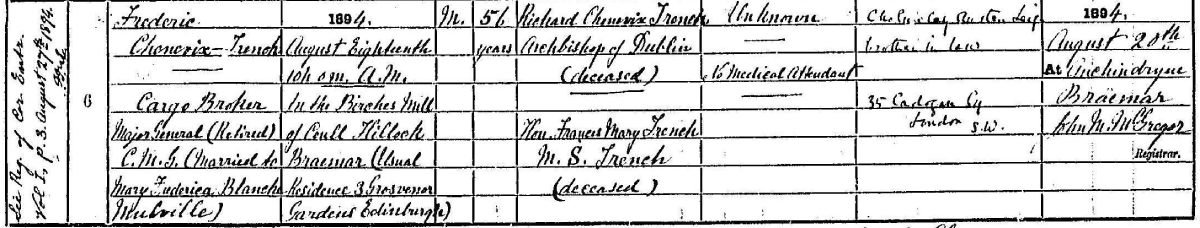 See Reg. of Cor. Entr.
Vol. I, p. 3. August 27th, 1894.
6
Frederic
Chenevix-Trench
Cargo Broker
Major General (Retired)
C. M. G. (Married to
Mary Frederica Blanche
Mulville)
1894.
August Eighteenth
10h. 0m. A.M.
In the Birches Mill
of Coull Hillock
Braemar (Usual
Residence 3 Grosvenor
Gardens Edinburgh)
M.
56
years
Richard Chenevix Trench
Archbishop of Dublin
(deceased)
Hon. Francis Mary Trench
M. S. Trench
(deceased)
Unknown
No Medical Attendant
brother in law
35 Cadogan Sq
London S.W.
1894.
August 20th
At Auchindryne
Braemar
John M. McGregor
Registrar.